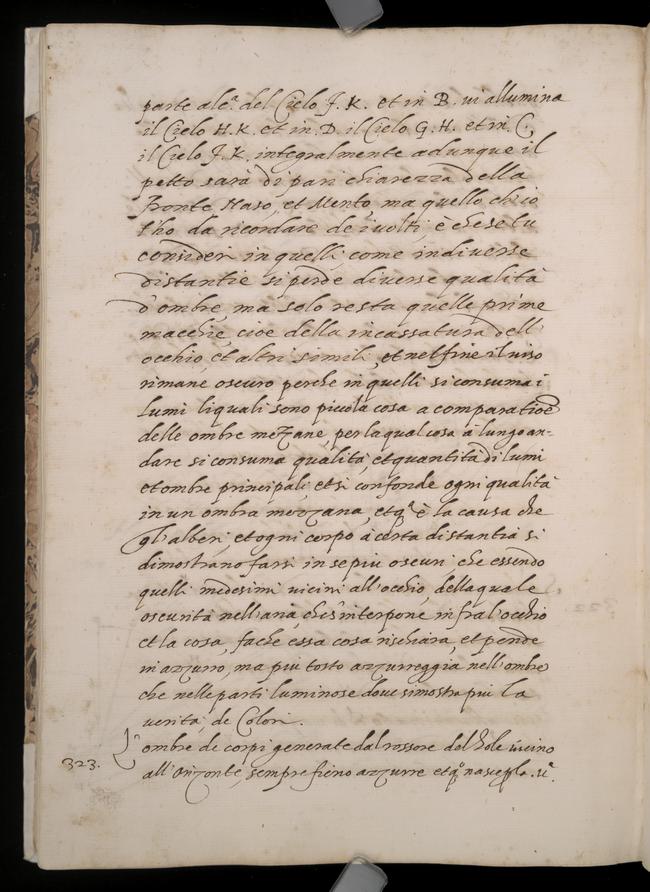 parte al e.ª del Cielo J. K. et in B. ui allumina
il Cielo H. K. et in. D. il Cielo G. H. et in. C.
il Cielo J. K. integralmente adunque il
petto sarà di pari chiarezza della
Fronte, Naso, et Mento, ma quello ch'io
t'ho da ricordare de i uolti, è che se tu
consideri in quelli, come in diuerse
distantie si perde diuerse qualità
d'ombre, ma solo resta quelle prime
macchie, cioè della incassatura dell'
occhio, et altri simili, et nel fine il uiso
rimane oscuro perche in quelli si consuma i
lumi li quali sono picciola cosa a comparatioē
delle ombre mezzane, per la qual cosa a lungo an-
dare si consuma qualità, et quantità di lumi
et ombre principali, et si confonde ogni qualità
in un ombra mezzana, et qª è la causa che
gl'alberi, et ogni corpo à certa distantia si
dimostrano farsi in se piu oscuri che essendo
quelli medesimi uicini all'occhio, della quale
oscurità nell'aria, che s'interpone in fra l'occhio
et la cosa, fa che essa cosa rischiara, et pende
in azzurro, ma più tosto azzurreggia nell'ombre
che nelle parti luminose doue si mostra più la
uerità, de Colori.
L'ombre de corpi generate dal rossore del Sole uicino
323. all'Orizonte, sempre fieno azzurre et qº nasce p la .xiª.